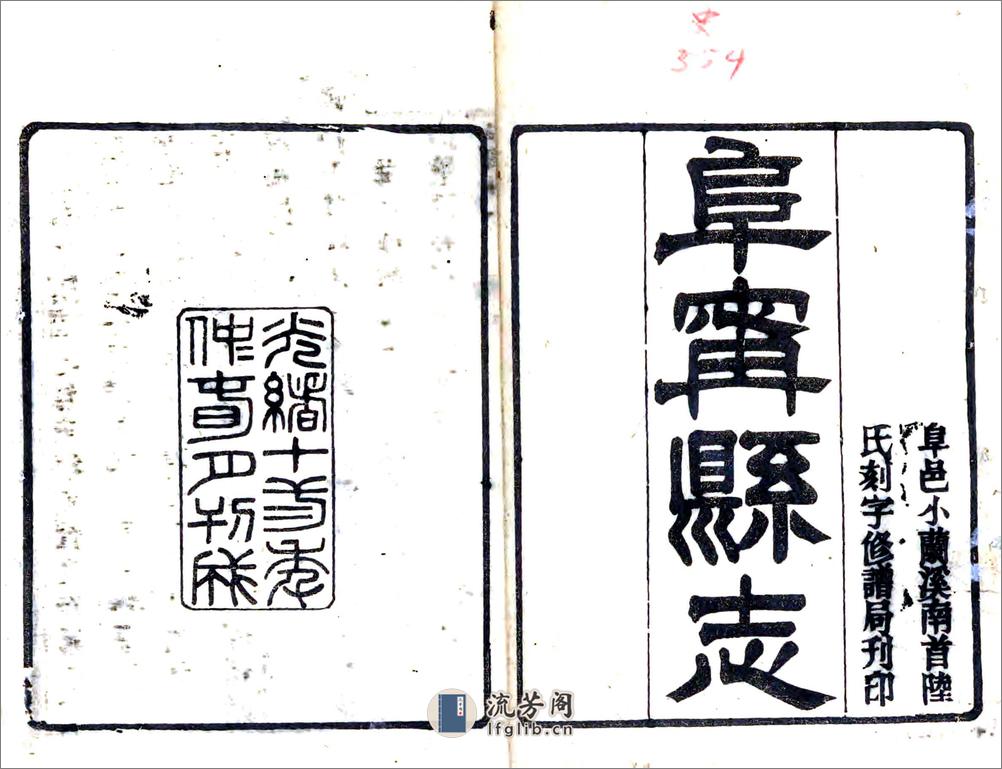 史
354
阜邑小蘭溪南首陸
氏刻字修譜局刊印
阜寧縣志
光緒十年
仲春月刊成
流芳阁
lfglib.cn